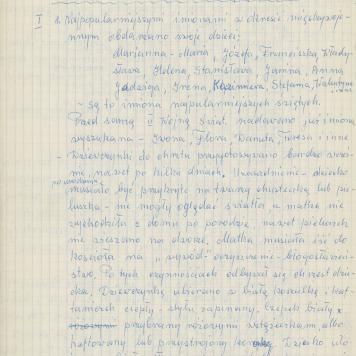 I 1. Najpopularniejszymi imionami w okresie międzywoje-
nnym dodawano swoje dzieci;
Marianna - Maria, Józefa, Franciszka, Włady-
sława, Helena, Stanisława, Janina, Anna
Jadwiga, Irena, Kazimiera, Stefania, Walentyna
i inne
- Są to imiona najpopularniejszych świętych.
Przed samą II Wojną Świat. nadawano już imiona
wyszukane - Iwona, Flora, Danuta, Teresa i inne
- Dziewczynki do chrztu przygotowywano bardzo wcześ-
nie, nawet po kilku dniach. Uwarunkowanie - dziecko
po urodzeniu
musiało być przykryte na twarzy chusteczką lub pie-
luszką - nie mogły oglądać światła a matka nie
wychodziła z domu po porodzie, nawet pieluszek
nie wieszano na dworze. Matka musiała iść do
kościoła na "wywód" - oczyszczenie - błogosławień-
stwo. Po tych czynnościach odbywał się chrzest dzie-
cka. Dziewczynkę ubierano w białą koszulkę, kaf-
tanik ciepły - z tyłu zapinany. Czepek biały
przybrany różowymi wstążeczkami, albo
haftowany lub przystrojony Dziecko